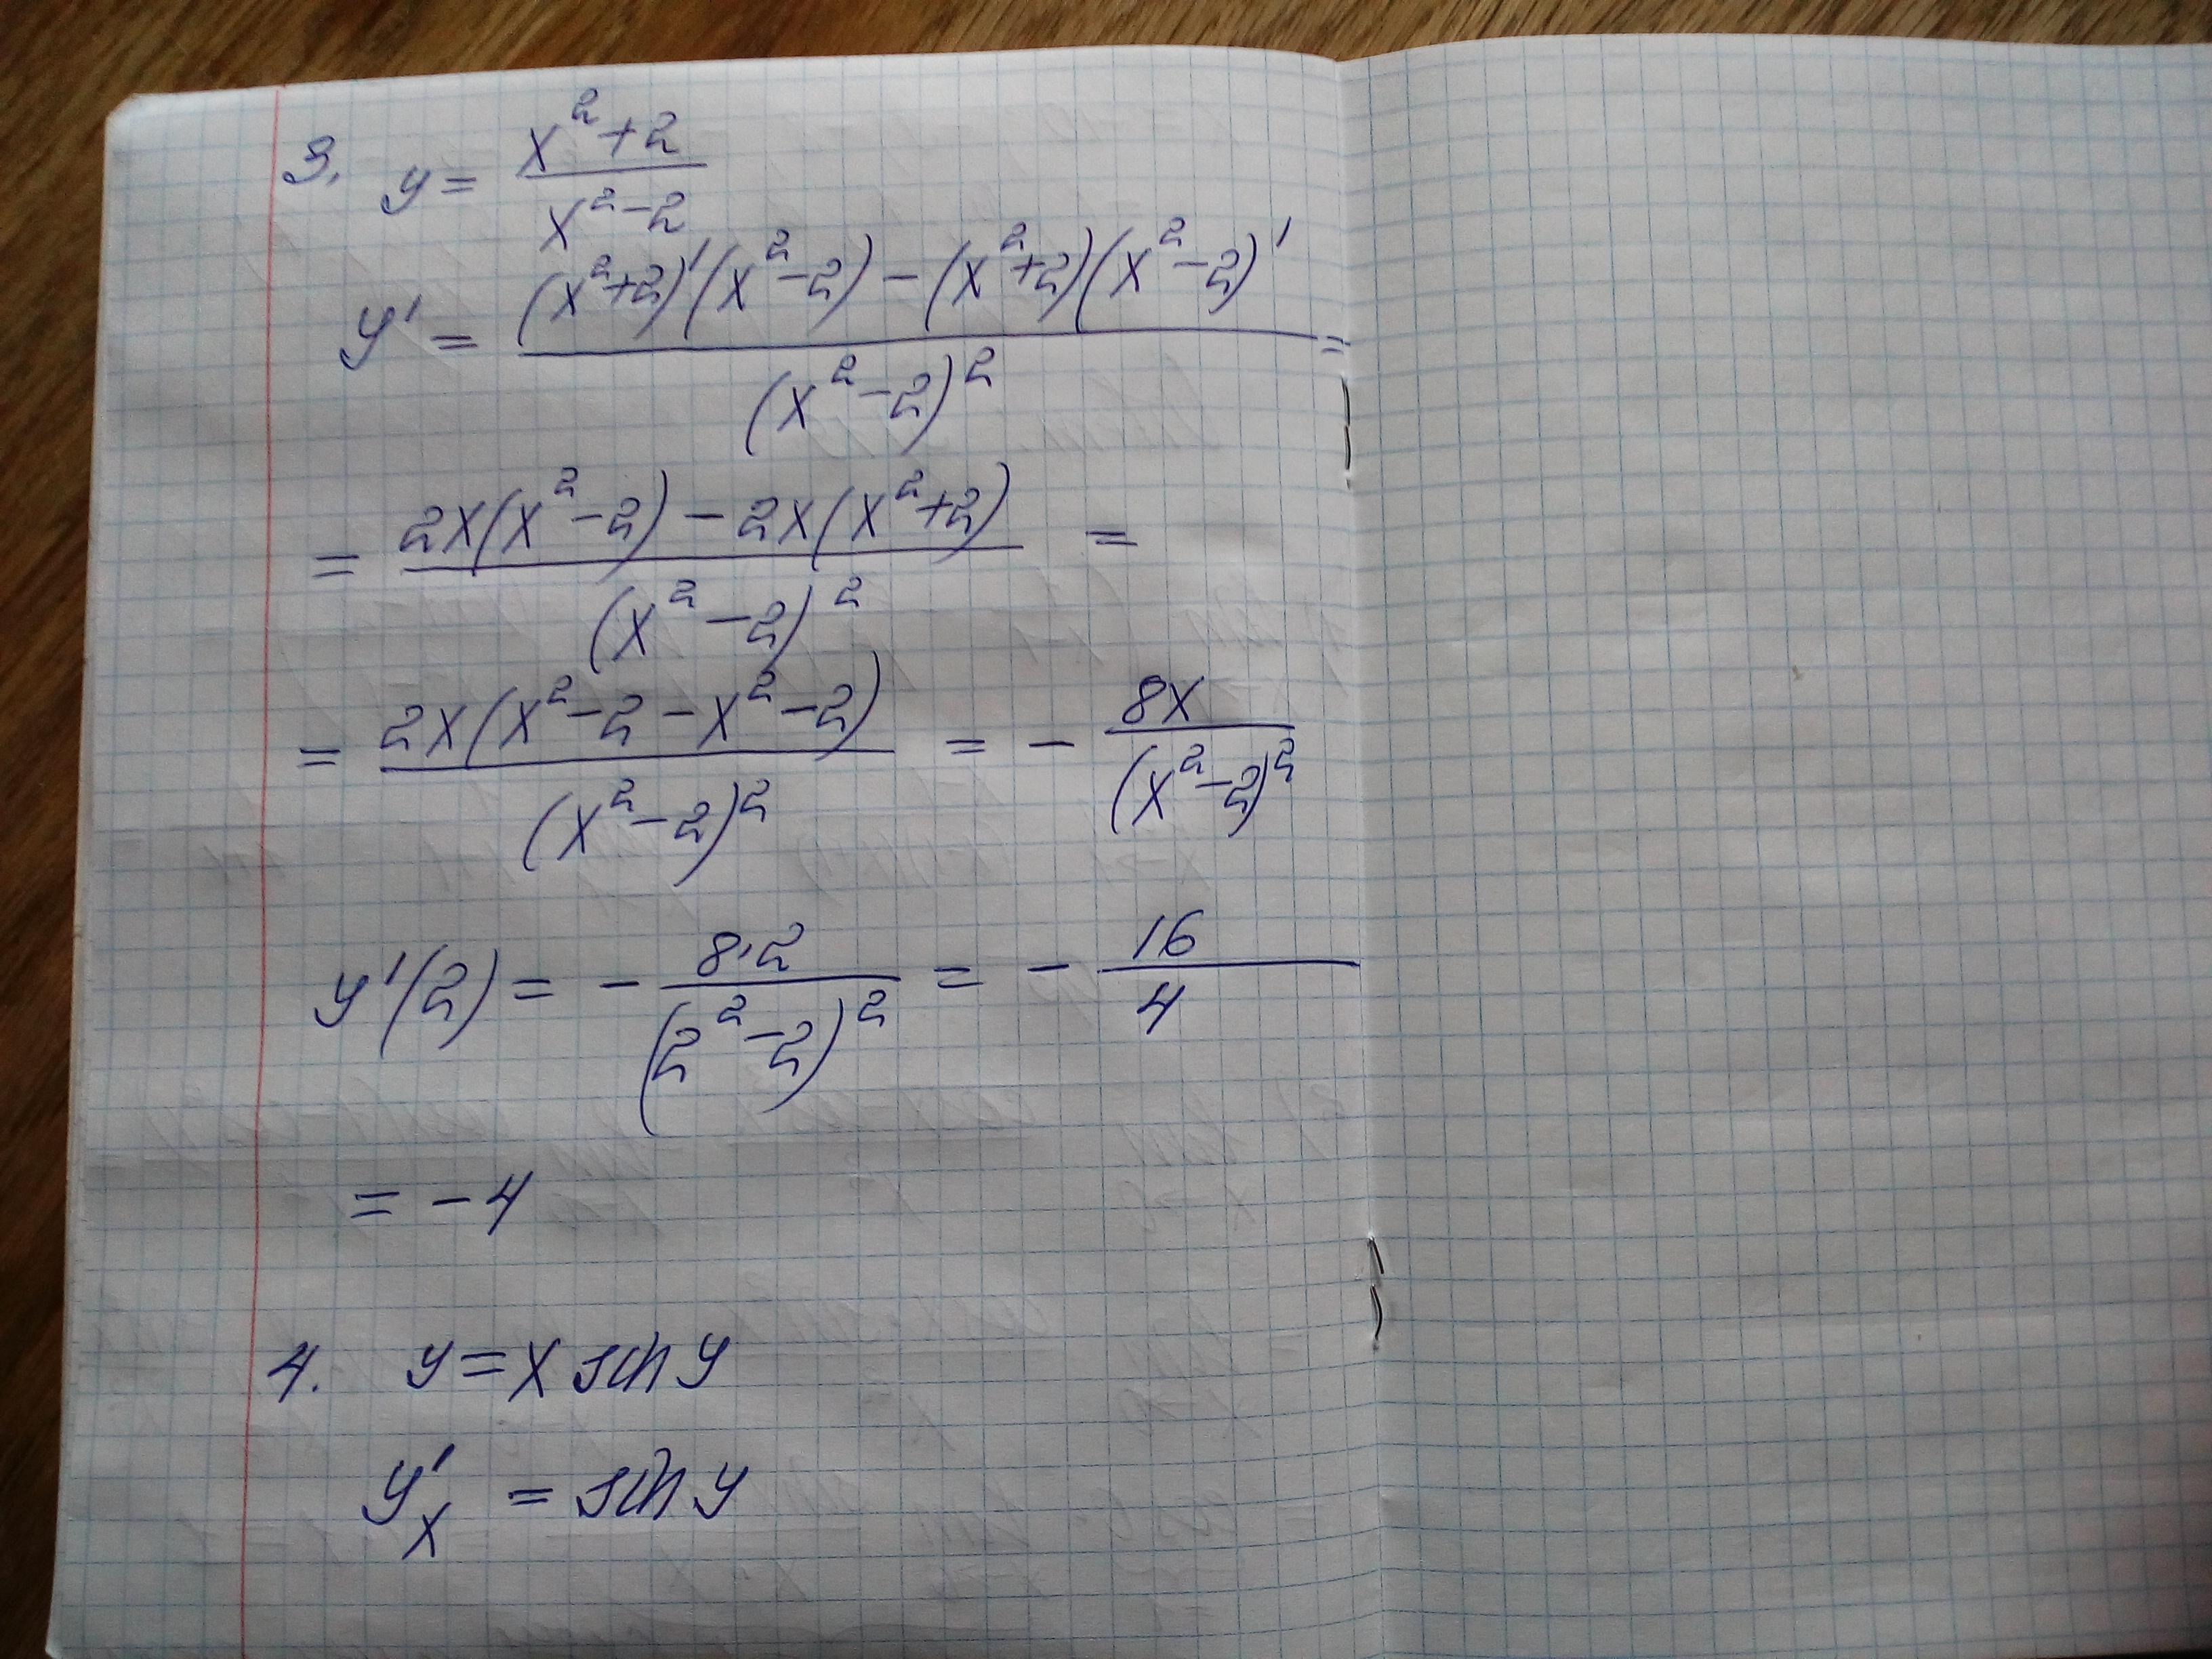 3. y = (x² + 2) / (x² - 2)
y' = ((x² + 2)'(x² - 2) - (x² + 2)(x² - 2)') / (x² - 2)² =
= (2x(x² - 2) - 2x(x² + 2)) / (x² - 2)² =
= (2x(x² - 2 - x² - 2)) / (x² - 2)² = - 8x / (x² - 2)²
y'(2) = - (8·2) / (2² - 2)² = - 16 / 4
= - 4
4. y = x sin y
y'ₓ = sin y